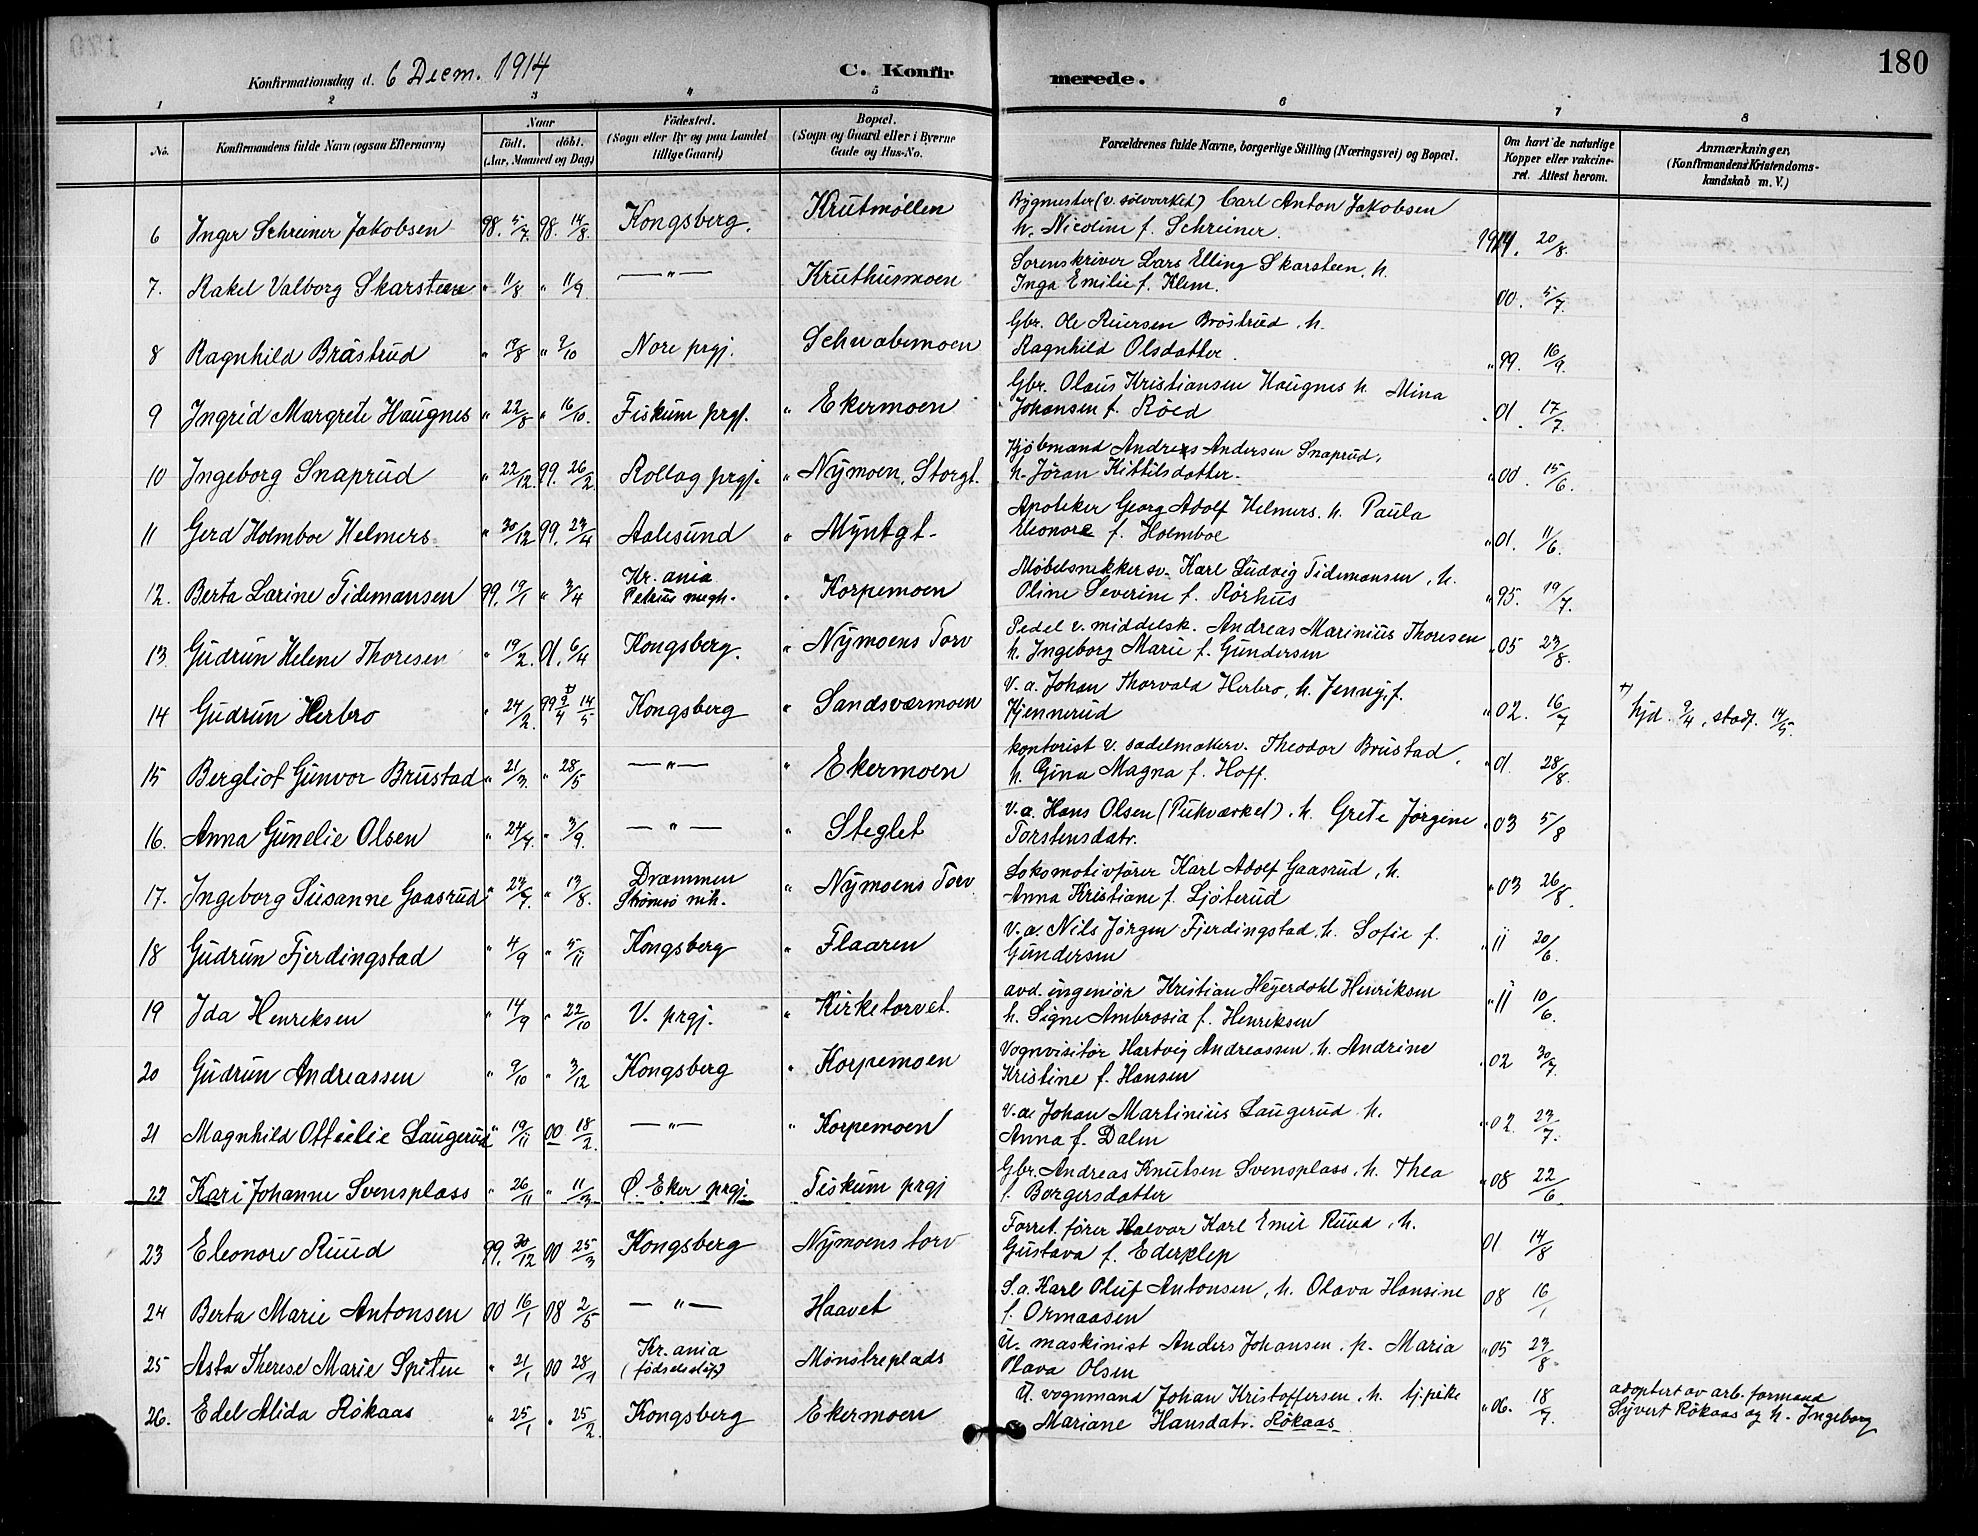 180
Konfirmationsdag d. 6 Decm. 1914
C. Konfirmerede.
1 2 3 4 5 6 7 8
No. Konfirmandens fulde Navn (ogsaa Efternavn) Naar født. døbt. (Aar, Maaned og Dag) Fødested. (Sogn eller By og paa Landet tillige Gaard) Bopæl. (Sogn og Gaard eller i Byerne Gade og Hus-No. Forældrenes fulde Navne, borgerlige Stilling (Næringsvei) og Bopæl. Om havt de naturlige Kopper eller vaccineret. Attest herom. Anmærkninger, (Konfirmandens Kristendomskundskab m. V.)
6 Inger Schreiner Jakobsen 98. 5/7. 98. 14/8. Kongsberg. Krutmøllen Bygmester (v. sølvverket) Carl Anton Jakobsen
h. Nicoline f. Schreiner. 1914. 20/8.
7. Rakel Valborg Skarsteen " 11/8 " 11/9 —"— Kruthusmoen Sorenskriver Lars Elling Skarsteen, h.
Inga Emilie f. Klem. 00. 5/7.
8 Ragnhild Bråstrud " 19/8 " 9/10 Nore prgj. Schwabemoen Gbr. Ole Reiersen Brøstrud, h.
Ragnhild Olsdatter. " 99. 16/9.
9 Ingrid Margrete Haugnes " 22/8 " 16/10. Fiskum prgj. " Ekermoen Gbr. Olaus Kristiansen Haugnes h. Mina
Johansen f. Røed " 01. 17/7.
10 Ingeborg Snaprud " 22/12. 99. 26/2. Rollag prgj. " Nymoen, Storgt. Kjøbmand Andreas Andersen Snaprud,
h. Jøran Kittilsdatter. " 00. 15/6.
11 Gerd Holmboe Helmers " 30/12 99. 23/4 Aalesund " Myntgt. Apoteker Georg Adolf Helmers. h. Paula
Eleonore f. Holmboe " 01. 11/6.
12. Berta Larine Tidemansen 99. 19/1 " 3/4 Kr.ania Petrus mgh. " Korpemoen Møbelsnekkersv. Karl Ludvig Tidemansen, h.
Oline Severine f. Rørhus " 95. 19/7.
13 Gudrun Helene Thoresen " 19/2. 01. 6/4 Kongsberg. " Nymoens Torv Pedel v. middelsk. Andreas Marinius Thoresen
h. Ingeborg Marie f. Gundersen " 05 23/8.
14 Gudrun Herbro " 24/2. 99 +) 9/4 14/5 Kongsberg " Sandsværmoen V.a. Johan Thorvald Herbro, h. Jenny, f.
Kjennerud " 02. 16/7 +) hjd. 9/4, stadf. 14/5.
15 Bergliot Gunvor Brustad " 21/3. " 28/5 —"— " Ekermoen kontorist v. sadelmakerv. Theodor Brustad,
h. Gina Magna f. Hoff. " 01 28/8.
16. Anna Gunelie Olsen " 24/7. " 3/9. —"— " Steglet V.a. Hans Olsen (Pukværket). h. Grete Jørgine
Torstensdatr. " 03 5/8
17. Ingeborg Susanne Gaasrud " 23/7. " 13/8. Drammen Strømsø mh. " Nymoens Torv Lokomotivfører Karl Adolf Gaasrud, h.
Anna Kristiane f. Ljøterud " 03 26/8.
18 Gudrun Fjerdingstad " 4/9 " 5/11 Kongsberg " Flaaren V.a. Nils Jørgen Fjerdingstad. h. Sofie f.
Gundersen " 11 20/6.
19 Ida Henriksen " 14/9 " 22/10 V. prgj. " Kirketorvet. avd. ingeniør Kristian Heyerdahl Henriksen
h. Signe Ambrosia f. Henriksen " 11 10/6.
20 Gudrun Andreassen " 9/10 " 3/12 Kongsberg " Korpemoen Vognvisitør Hartvig Andreassen. h. Andrine
Kristine f. Hansen " 02 30/7.
21 Magnhild Ottilie Laugerud " 19/11 00 18/2. —"— " Korpemoen V.a. Johan Martinius Laugerud h.
Anna f. Dalen " 02. 23/7.
22 Kari Johanne Svensplass " 26/11 " 11/3. Ø. Eker prgj. Fiskum prgj Gbr. Andreas Knutsen Svensplass, h. Thea
f. Borgersdatter " 08 22/6
23 Eleonore Ruud 99. 30/12 00 25/3 Kongsberg Nymoens torv Forret. fører Halvor Karl Emil Ruud, h.
Gustava f. Ederklep 01 14/8
24 Berta Marie Antonsen 00 16/1 08 2/5 —"— Haavet S.a. Karl Oluf Antonsen, h. Olava Hansine
f. Ormaasen 08 16/1
25 Asta Therese Marie Spiten " 21/1 00 28/1 Kr.ania (fødselsstif.) Mønstreplads U. maskinist Anders Johansen. p. Maria
Olava Olsen " 05 23/8.
26. Edel Alida Røkaas " 25/1 " 25/2. Kongsberg Ekermoen U. vognmand Johan Kristoffersen, h. tj.pike
Mariane Hansdatr. Røkaas " 06. 18/7. adoptert av arb. formand
Syvert Røkaas og h. Ingeborg